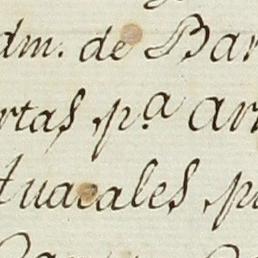 dm. de Bar
rtas, pª ar
tuacales, p